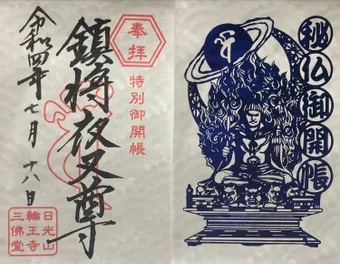 奉拝
特別御開帳
鎮将夜叉尊
令和四年七月十八日
日光山
輪王寺
三佛堂
秘仏御開帳